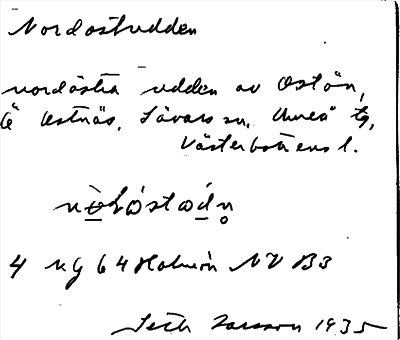 Nordostudden
nordöstra udden av Ostön,
Ostnäs, Sävars sn, Umeå tg,
Västerbottens l.
4 NG 64 Holmön NV B3
Seth Larsson 1935